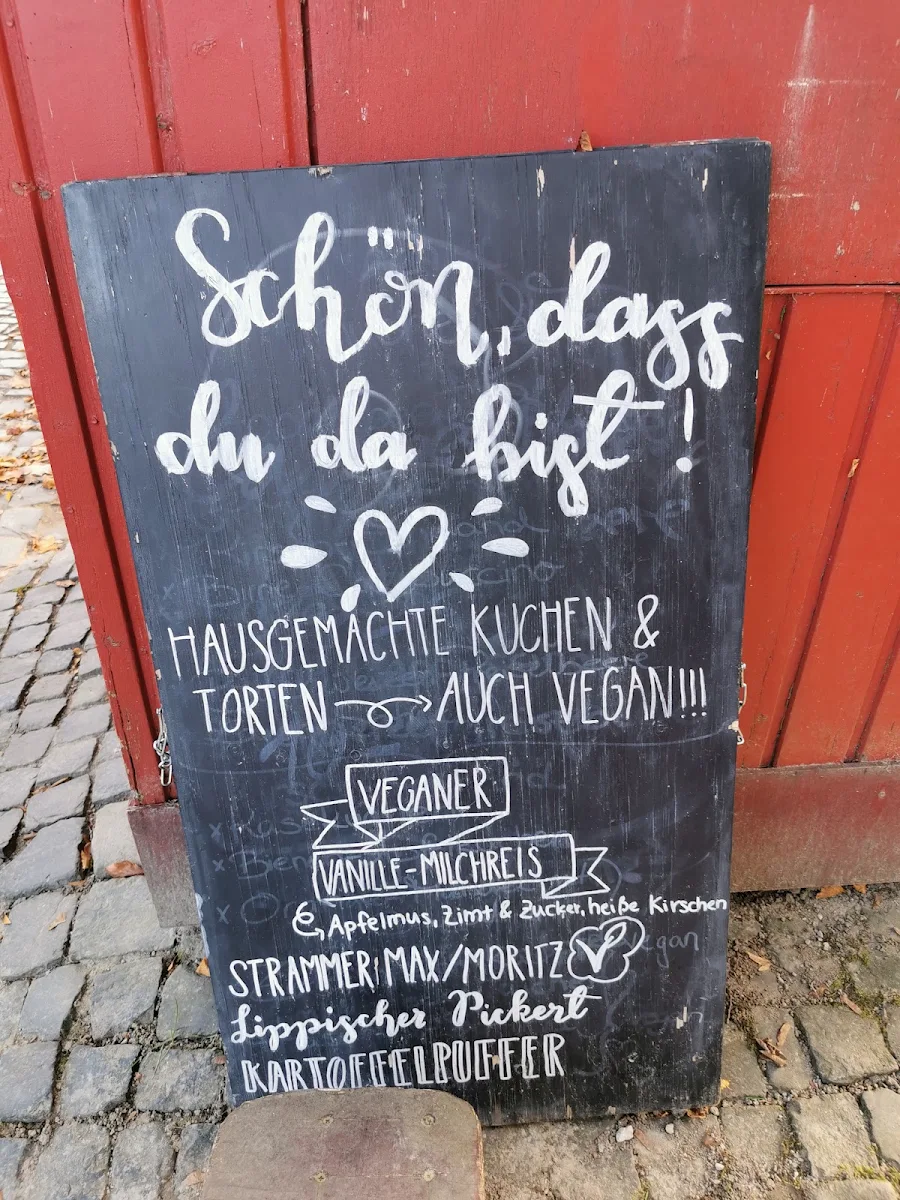 Schön, dass
du da bist!
HAUSGEMACHTE KUCHEN &
TORTEN → AUCH VEGAN!!!
VEGANER
VANILLE-MILCHREIS
Apfelmus, Zimt & Zucker, heiße Kirschen
STRAMMER MAX/MORITZ V
Lippischer Pickert
KARTOFFELPUFFER